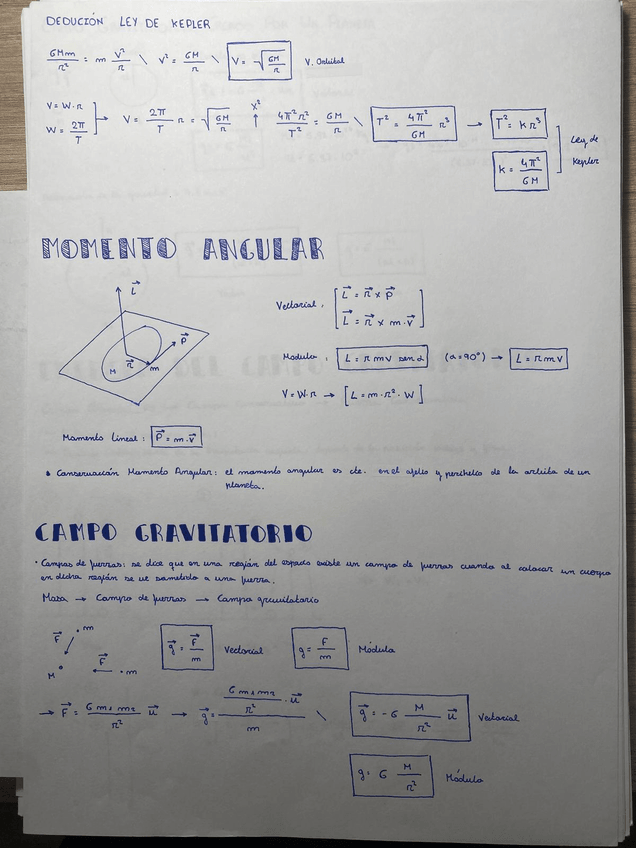 DEDUCIÓN LEY DE KEPLER
GMm/r² = m v²/r \ v² = GM/r \ V = √(GM/r) V. Orbital
V = W·r
W = 2π/T
V = 2π/T r = √(GM/r) ↑ x² 4π²r²/T² = GM/r \ T² = 4π²/GM r³ → T² = k r³
k = 4π²/GM
Ley de Kepler
MOMENTO ANGULAR
L⃗
P⃗
r⃗
M
m
Vectorial: [L⃗ = r⃗ x P⃗
L⃗ = r⃗ x m·v⃗]
Módulo: L = r m v sen α (α=90°) → L = r m V
V = W·r → [L = m·r²·W]
Momento Lineal: P⃗ = m·v⃗
• Conservación Momento Angular: el momento angular es cte. en el afelio y perihelio de la orbita de un
planeta.
CAMPO GRAVITATORIO
· Campos de fuerzas: se dice que en una región del espacio existe un campo de fuerzas cuando al colocar un cuerpo
en dicha región se ve sometido a una fuerza.
Masa → Campo de fuerzas → Campo gravitatorio
F⃗ m
M F⃗ m
g⃗ = F⃗/m Vectorial g = F/m Módulo
→ F⃗ = G m1 m2/r² u⃗ → g⃗ = (G m1 m2/r² · u⃗)/m \ g⃗ = -G M/r² u⃗ Vectorial
g = G M/r² Módulo